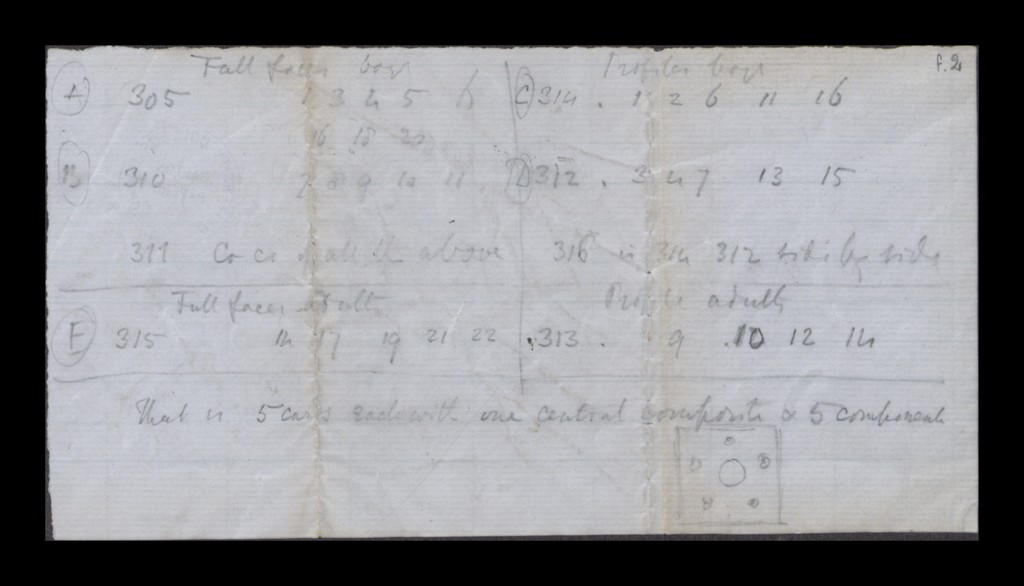 f. 2
Full faces boys
A 305 1 3 4 5 6
16 18 20
B 310 7 8 9 10 11
311 Co cs of all the above
Profiles boys
C 314 . 1 2 6 11 16
D 312 . 3 4 7 13 15
316 is 314 312 side by side
Full faces adults
E 315 14 17 19 21 22
Profile adults
313 . 9 . 10 12 14
That is 5 cards each with one central composite & 5 components